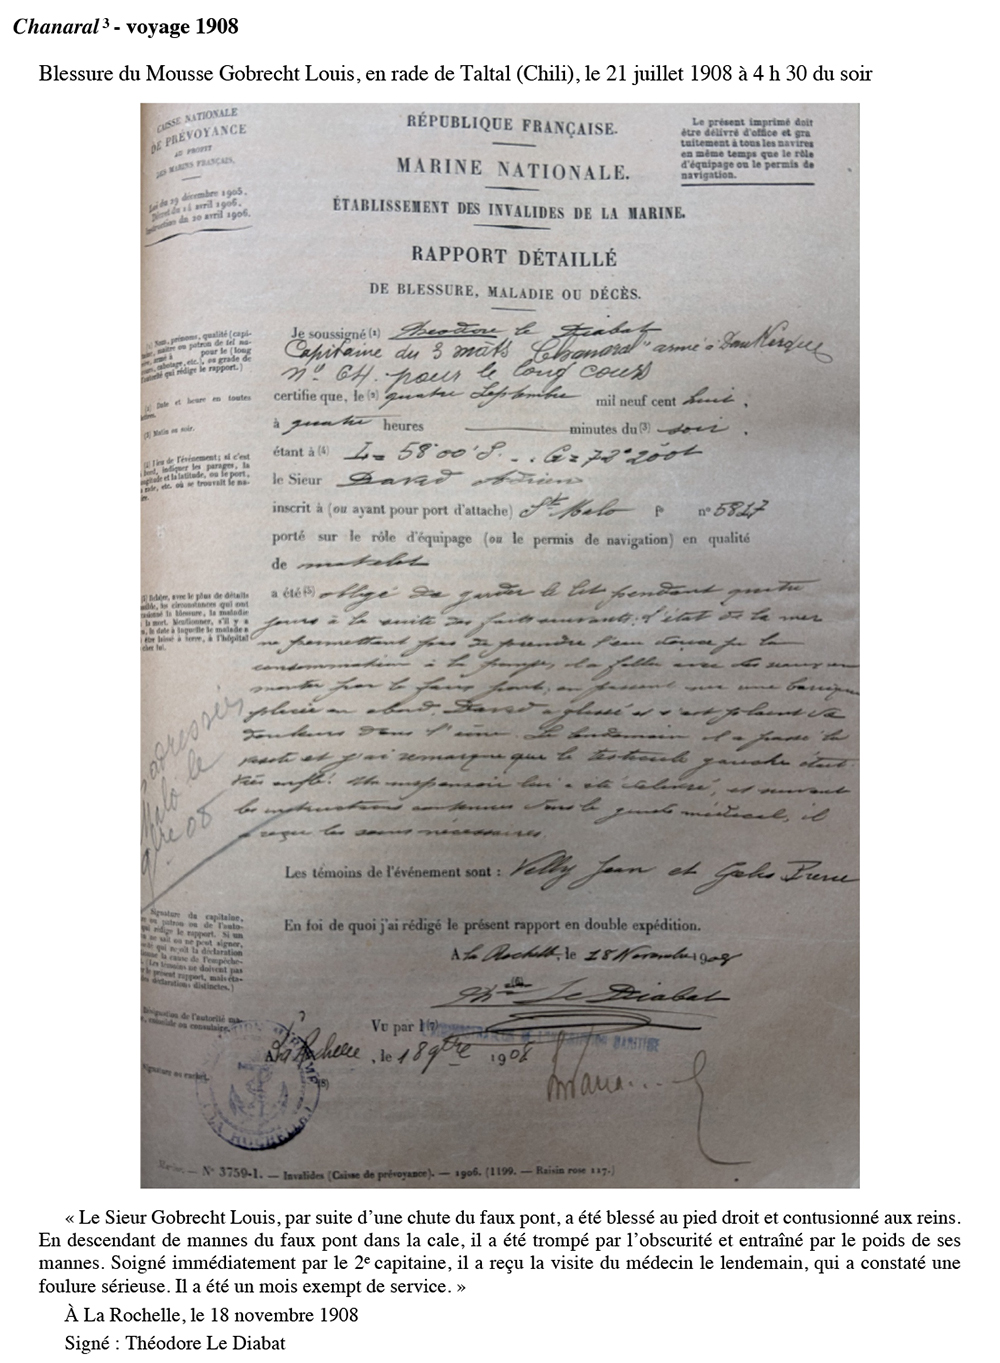 Chanaral ³ - voyage 1908
Blessure du Mousse Gobrecht Louis, en rade de Taltal (Chili), le 21 juillet 1908 à 4 h 30 du soir
CAISSE NATIONALE
DE PRÉVOYANCE
AU PROFIT
DES MARINS FRANÇAIS.
Loi du 29 décembre 1905.
Décret du 14 avril 1906.
Instruction du 20 avril 1906.
RÉPUBLIQUE FRANÇAISE.
MARINE NATIONALE.
ÉTABLISSEMENT DES INVALIDES DE LA MARINE.
Le présent imprimé doit
être délivré d'office et gra
tuitement à tous les navires
en même temps que le rôle
d'équipage ou le permis de
navigation.
RAPPORT DÉTAILLÉ
DE BLESSURE, MALADIE OU DÉCÈS.
Je soussigné (1) Théodore le Diabat
Capitaine du 3 mâts "Chanaral" armé à Dunkerque
n° 64. pour le long cours
certifie que, le (2) quatre Septembre mil neuf cent huit,
à quatre heures minutes du (3) soir.
étant à (4) L = 58°00' S. G = 78°20 Ot
le Sieur David Adrien
inscrit à (ou ayant pour port d'attache) St Malo f° n° 5817
porté sur le rôle d'équipage (ou le permis de navigation) en qualité
de matelot
a été (5) obligé de garder le lit pendant quatre
jours à la suite des faits suivants: l'état de la mer
ne permettant pas de prendre l'eau douce pr la
consommation à la pompe, il a fallu avec des seaux en
monter par le faux pont, en passant sur une barrique
placée en abord. David a glissé et s'est plaint de
douleurs dans l'aine. Le lendemain il a passé la
visite et j'ai remarqué que le testicule gauche était
très enflé. Un suspensoir lui a été délivré, et suivant
les instructions contenues dans le guide médical, il
a reçu les soins nécessaires.
(1) Nom, prénoms, qualité (capi-
pour le (long
etc.), ou grade de
qui rédige le rapport.)
(2) Date et heure en toutes
(3) Matin ou soir.
(4) Lieu de l'événement; si c'est
indiquer les parages, la
et la latitude, ou le port,
rade, etc. où se trouvait le na-
avec le plus de détails
les circonstances qui ont
la blessure, la maladie
la mort. Mentionner, s'il y a
la date à laquelle le malade a
été laissé à terre, à l'hôpital
adressé
Malo le
9bre 08
Les témoins de l'événement sont : Velly Jean et Pierre
En foi de quoi j'ai rédigé le présent rapport en double expédition.
Signature du capitaine,
patron ou de l'auto-
qui rédige le rapport. Si un
ne sait ou ne peut signer,
la déclaration
la cause de l'empêche-
(Les témoins ne doivent pas
le présent rapport, mais
déclarations distinctes.)
A La Rochelle, le 18 Novembre 1908
(6)
Th Le Diabat
Désignation de l'autorité ma-
consulaire.
Vu par l (7)
A La Rochelle, le 18 9bre 1908
(8)
Signature au cachet.
LA ROCHELLE
Marine. — N° 3759-1. — Invalides (Caisse de prévoyance). — 1906. (1199. — Raisin rose 117.)
« Le Sieur Gobrecht Louis, par suite d’une chute du faux pont, a été blessé au pied droit et contusionné aux reins.
En descendant de mannes du faux pont dans la cale, il a été trompé par l’obscurité et entraîné par le poids de ses
mannes. Soigné immédiatement par le 2e capitaine, il a reçu la visite du médecin le lendemain, qui a constaté une
foulure sérieuse. Il a été un mois exempt de service. »
À La Rochelle, le 18 novembre 1908
Signé : Théodore Le Diabat